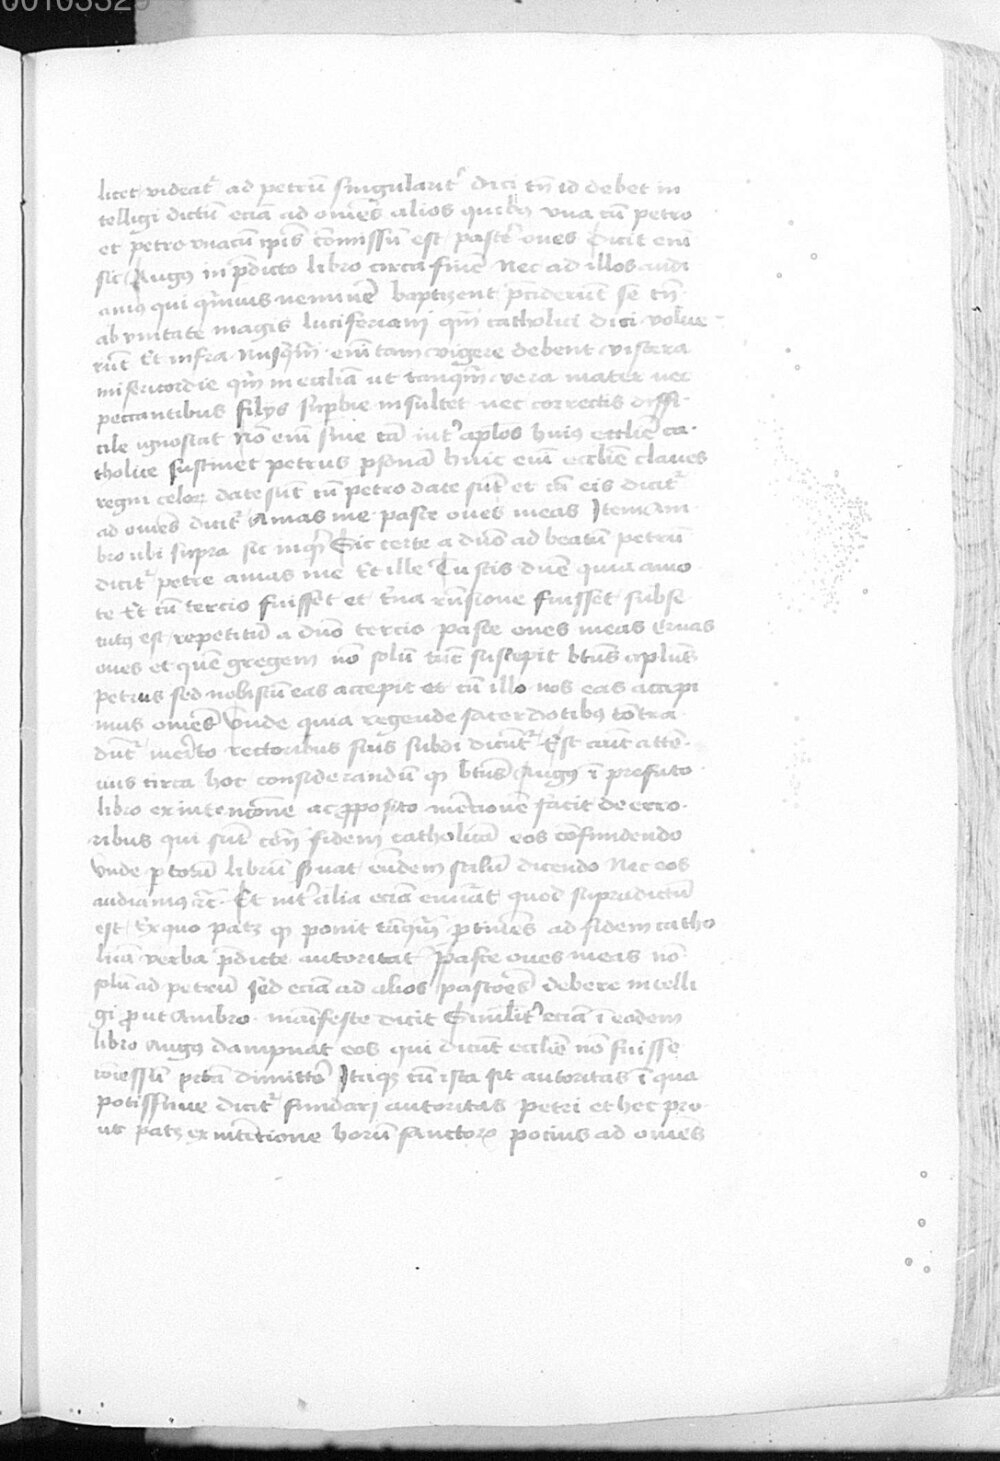 00103329
licet videat᷑ ad petrū singularit᷑ dici tn̄ id debet in
telligi dictū eciā ad om̄es alios quibȝ vna cū petro
et petro vnacū ip̄is cōmissū est pasce oues Dicit eni
sic Augȝ in p̄dicto libro circa finē Nec ad illos audi
amȝ qui q̄muis neminē baptizent p̄ciderūt se tn̄
ab vnitate magis luciferiani qm̄ catholici dici volue
rūt Et infra nusq̄m enī tam vigere debent viscera
misericordie qm̄ in eccliā ut tanq̄m vera mater nec
peccantibus filijs suꝑbie insultet nec correctis diffi
cile ignoscat Nō enī sine cā int᷑ aplos huiꝰ ecclie ca
tholice sustinet petrus ꝑsonā huic enī ecclie claues
regni celoꝝ date sūt cū petro date sūt et cū eis dicit᷑
ad om̄es dicit᷑ Amas me pasce oues meas Item Am
bro ubi supra sic inq̄t Sic certe a dn̄o ad beatū petrū
dicit᷑ petre amas me Et ille Tu scis dn̄e quia amo
te Et cū tercio fuisset et t̄na rn̄sione fuisset subse
cutȝ est repetitū a dn̄o tercio pasce oues meas Quas
oues et quē gregem nō solū tūc suscepit btūs aplūs
petrus sed nobiscū eas accepit et cū illo nos eas accepi
mus om̄es Vnde quia regende sacerdotibȝ cōtra
dūt᷑ merito rectoribus suis subdi dicūt᷑ Est aūt atte
cius circa hoc considerandū qꝫ btūs Augȝ ī prefato
libro ex intencōne ac ꝓposito mēcionē facit de erro
ribus qui sūt con̄ fidem catholicā eos cōfundendo
Vnde ꝑ totū librū s̄uat eūdem stilū dicendo Nec eos
audiamȝ ⁊c̄ Et int᷑ alia eciā enūat quod supradictū
est Ex quo patȝ qꝫ ponit tāq̄m ꝑtinēs ad fidem catho
licā verba p̄dicte autoritat pasce oues meas nō
solū ad petrū sed eciā ad alios pastores debere intelli
gi ꝓut Ambro manifeste dicit Similit᷑ eciā ī eodem
libro Augȝ dampnat eos qui dicūt eccliē nō fuisse
cōcessū pctā dimittē Itaqȝ cū ista sit autoritas ī qua
potissime dicit᷑ fundari autoritas petri et hec pro
ut patȝ ex intēcione horū sanctoꝝ pocius ad om̄es